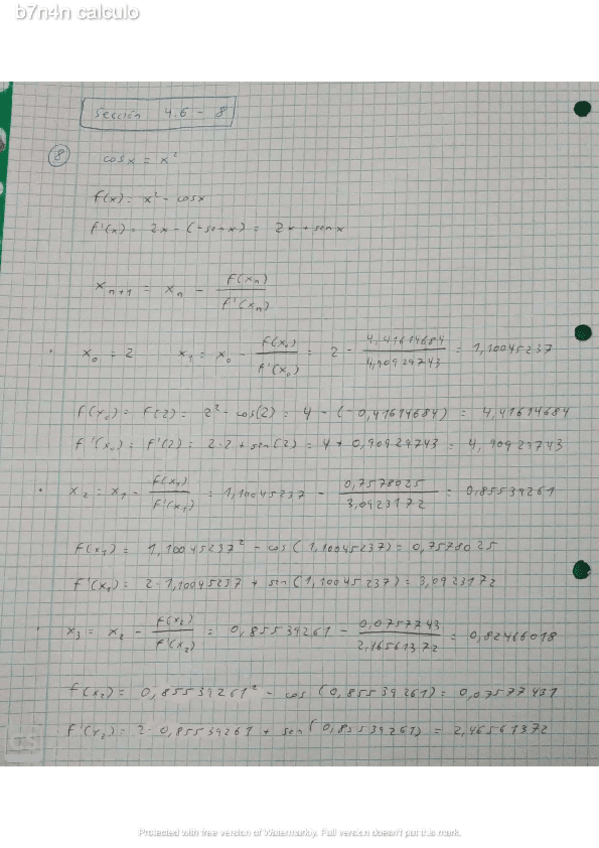 b7n4n calculo
Sección 4.6 - 8
⑧ cosx = x²
f(x) = x² - cosx
f'(x) = 2x - (-senx) = 2x + senx
x_{n+1} = x_n - f(x_n) / f'(x_n)
· x₀ = 2 x₁ = x₀ - f(x₀) / f'(x₀) = 2 - 4,41614684 / 4,90929743 = 1,10045237
f(x₀) = f(2) = 2² - cos(2) = 4 - (-0,41614684) = 4,41614684
f'(x₀) = f'(2) = 2·2 + sen(2) = 4 + 0,90929743 = 4,90929743
· x₂ = x₁ - f(x₁) / f'(x₁) = 1,10045237 - 0,7578025 / 3,0923172 = 0,85539261
f(x₁) = 1,10045237² - cos(1,10045237) = 0,7578025
f'(x₁) = 2·1,10045237 + sin(1,10045237) = 3,0923172
· x₃ = x₂ - f(x₂) / f'(x₂) = 0,85539261 - 0,0757743 / 2,46561372 = 0,82466018
f(x₂) = 0,85539261² - cos(0,85539261) = 0,07577431
f'(x₂) = 2·0,85539261 + sen(0,85539261) = 2,46561372
Protected with free version of Watermarkly. Full version doesn't put this mark.